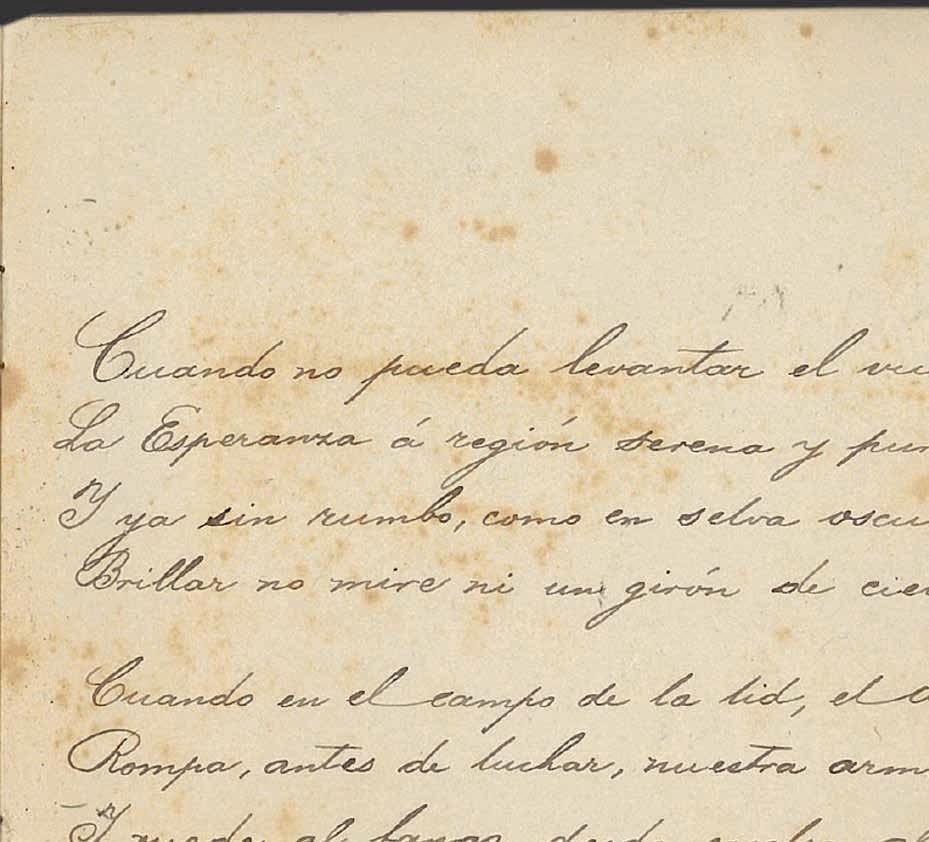 Cuando no pueda levantar el vu
La Esperanza á región serena y pur
Y ya sin rumbo, como en selva oscu
Brillar no mire ni un girón de cie
Cuando en el campo de la lid, el
Rompa, antes de luchar, nuestra arm
Y ruede al fango, desde